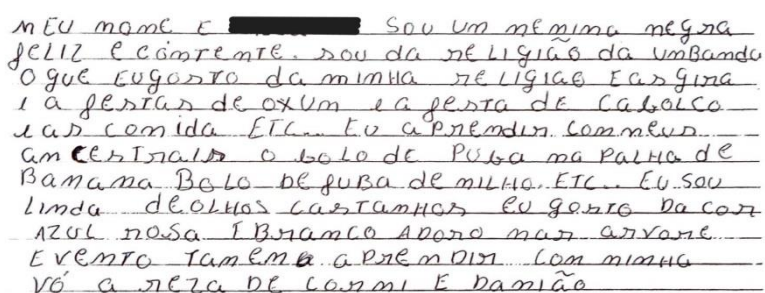 MEU NOME E SOU UM MENINA NEGRA
FELIZ E CONTENTE. SOU DA RELIGIÃO DA UMBANDA
O QUE EU GOSTO DA MINHA RELIGIAO E AS GIRA
E A FESTAS DE OXUM E A FESTA DE CABOLCO
E AS COMIDA ETC... EU APRENDIR COM MEUS
ANCENTRAIS O BOLO DE PUBA NA PALHA DE
BANANA BOLO DE FUBA DE MILHO. ETC.. EU SOU
LINDA DE OLHOS CASTANHOS EU GOSTO DA COR
AZUL ROSA E BRANCO ADORO NAS ARVORE
E VENTO TAMEM APRENDIR COM MINHA
VÓ A REZA DE COSMI E DAMIÃO